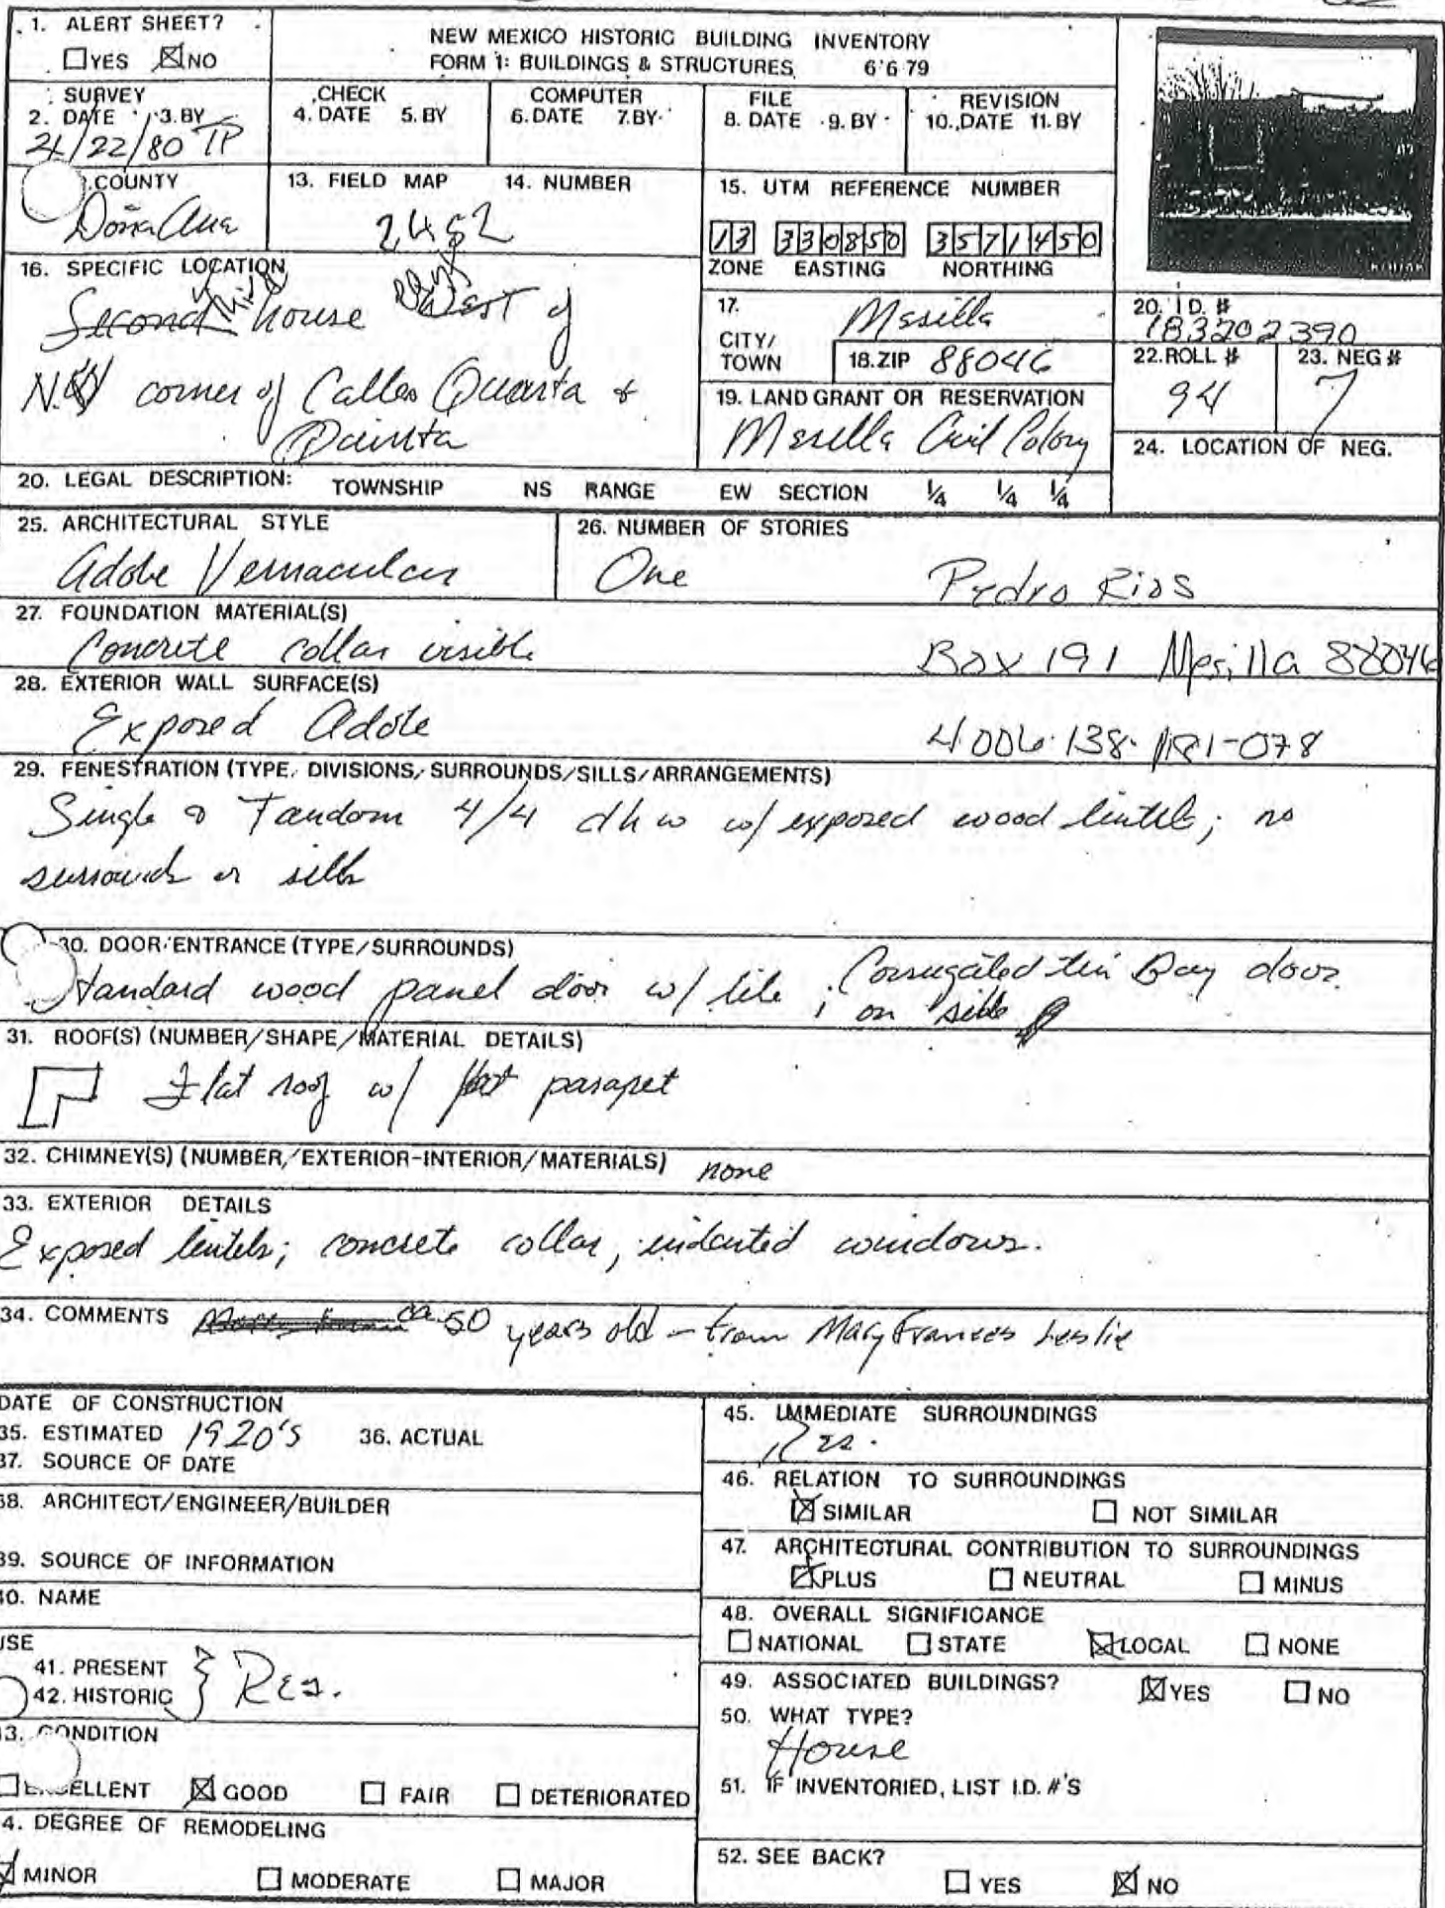 1. ALERT SHEET?
☐YES ☒NO
NEW MEXICO HISTORIC BUILDING INVENTORY
FORM 1: BUILDINGS & STRUCTURES 6'6'79
SURVEY
2. DATE 3. BY
4/22/80 TP
CHECK
4. DATE 5. BY
COMPUTER
6. DATE 7. BY
FILE
8. DATE 9. BY
REVISION
10. DATE 11. BY
COUNTY
Doña Ana
13. FIELD MAP 14. NUMBER
2452
15. UTM REFERENCE NUMBER
13 330850 3571450
ZONE EASTING NORTHING
16. SPECIFIC LOCATION
Second Third house West of
N. corner of Calles Quarta &
Quinta
17. CITY/TOWN Mesilla
18. ZIP 88046
19. LAND GRANT OR RESERVATION
Mesilla Civil Colony
20. I.D. #
183202390
22. ROLL # 23. NEG #
94 7
24. LOCATION OF NEG.
20. LEGAL DESCRIPTION: TOWNSHIP NS RANGE EW SECTION ¼ ¼ ¼
25. ARCHITECTURAL STYLE
Adobe Vernacular
26. NUMBER OF STORIES
One
Pedro Rios
27. FOUNDATION MATERIAL(S)
Concrete collar visible
Box 191 Mesilla 88046
28. EXTERIOR WALL SURFACE(S)
Exposed Adobe
4006-138-181-078
29. FENESTRATION (TYPE, DIVISIONS, SURROUNDS/SILLS/ARRANGEMENTS)
Single & Tandom 4/4 dhw w/ exposed wood lintels; no
surrounds or sills
30. DOOR/ENTRANCE (TYPE/SURROUNDS)
Standard wood panel door w/ lite; Corrugated tin Bay door
on side
31. ROOF(S) (NUMBER/SHAPE/MATERIAL DETAILS)
Flat roof w/ parapet
32. CHIMNEY(S) (NUMBER/EXTERIOR-INTERIOR/MATERIALS) none
33. EXTERIOR DETAILS
Exposed lintels; concrete collar, indented windows.
34. COMMENTS ca 50 years old - from Mary Frances Leslie
DATE OF CONSTRUCTION
35. ESTIMATED 1920's 36. ACTUAL
37. SOURCE OF DATE
38. ARCHITECT/ENGINEER/BUILDER
39. SOURCE OF INFORMATION
40. NAME
USE
41. PRESENT
42. HISTORIC } Res.
43. CONDITION
☐EXCELLENT ☒GOOD ☐FAIR ☐DETERIORATED
44. DEGREE OF REMODELING
☒MINOR ☐MODERATE ☐MAJOR
45. IMMEDIATE SURROUNDINGS
Res.
46. RELATION TO SURROUNDINGS
☒SIMILAR ☐NOT SIMILAR
47. ARCHITECTURAL CONTRIBUTION TO SURROUNDINGS
☒PLUS ☐NEUTRAL ☐MINUS
48. OVERALL SIGNIFICANCE
☐NATIONAL ☐STATE ☒LOCAL ☐NONE
49. ASSOCIATED BUILDINGS? ☒YES ☐NO
50. WHAT TYPE?
House
51. IF INVENTORIED, LIST I.D. #'S
52. SEE BACK?
☐YES ☒NO